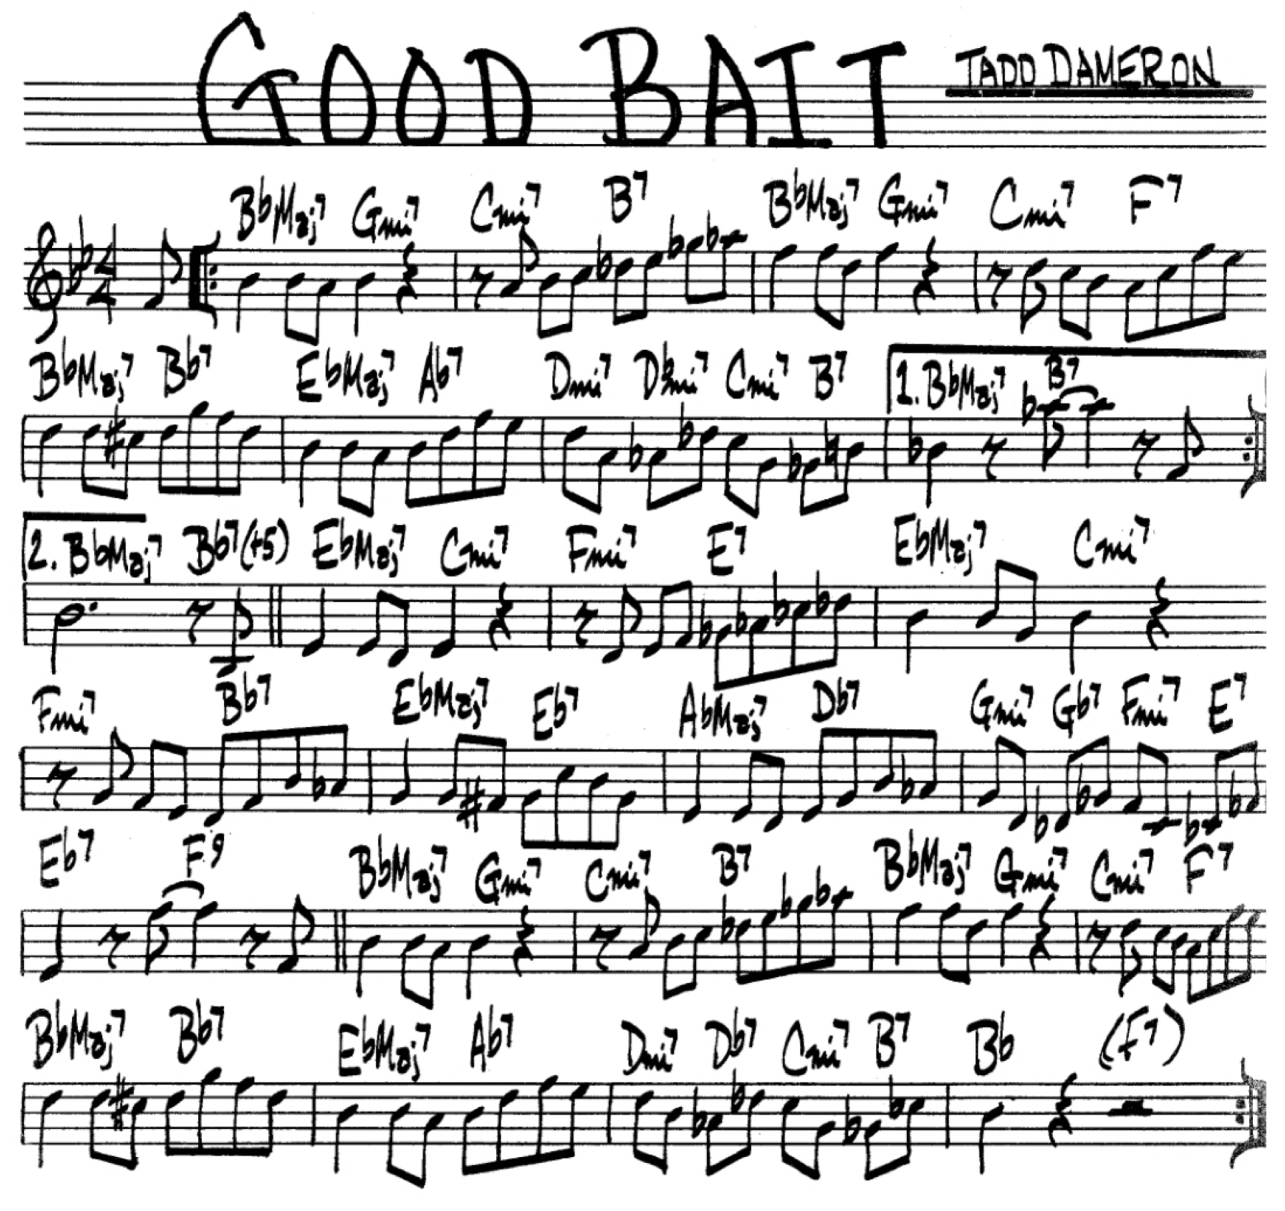 GOOD BAIT
TADD DAMERON
BbMaj7 Gmi7 Cmi7 B7 BbMaj7 Gmi7 Cmi7 F7
BbMaj7 Bb7 EbMaj7 Ab7 Dmi7 Dbmi7 Cmi7 B7 1. BbMaj7 B7
2. BbMaj7 Bb7(+5) EbMaj7 Cmi7 Fmi7 E7 EbMaj7 Cmi7
Fmi7 Bb7 EbMaj7 Eb7 AbMaj7 Db7 Gmi7 Gb7 Fmi7 E7
Eb7 F9 BbMaj7 Gmi7 Cmi7 B7 BbMaj7 Gmi7 Cmi7 F7
BbMaj7 Bb7 EbMaj7 Ab7 Dmi7 Db7 Cmi7 B7 Bb (F7)